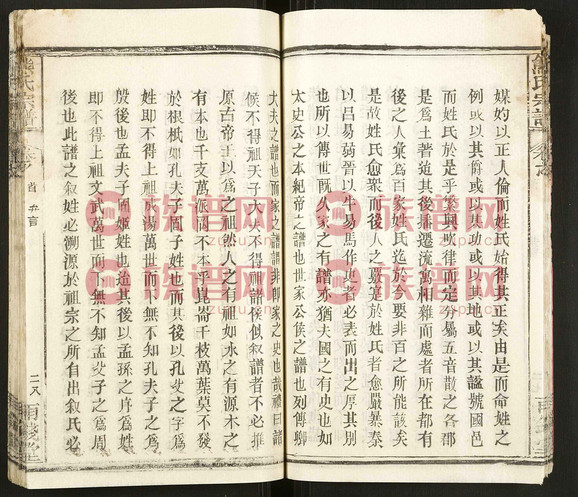 媒妁以正人倫而姓氏始得其正矣由是而命姓之
例或以其爵或以其功或以其地或以其謚號國邑
而姓氏於是乎繁興吹律而定分屬五音散之各郡
是爲土著迨其後播遷流寓相雜而處者所在都有
後之人彙爲百家姓氏迄於今要非百之所能該矣
是故姓氏愈衆而後人之斅寔於姓氏者愈嚴暴秦
以呂易嬴晉以牛易馬作史者必表而出之厚其別
也所以傳世旣久家之有譜亦猶夫國之有史也如
太史公之本紀帝之譜也世家公侯之譜也列傳卿
大夫之譜也而家之譜謂非卽家之史也哉禮曰諸
候不得祖天子大夫不得祖諸侯似叙譜者不必推
原古帝王以爲之祖然人之有祖如水之有源木之
有本也千支萬派而不本乎崑崙千枝萬葉莫不發
於根柢如孔夫子固子姓也而其後以孔父之字爲
姓卽不得上祖成湯萬世而下無不知孔夫子之爲
殷後也孟夫子固姬姓也迨其後以孟孫之序爲姓
卽不得上祖文武萬世而下無不知孟夫子之爲周
後也此譜之叙姓必溯源於祖宗之所自出叙氏必
熊氏宗譜
卷之首 弁言
二八
族谱网
zupu.cn